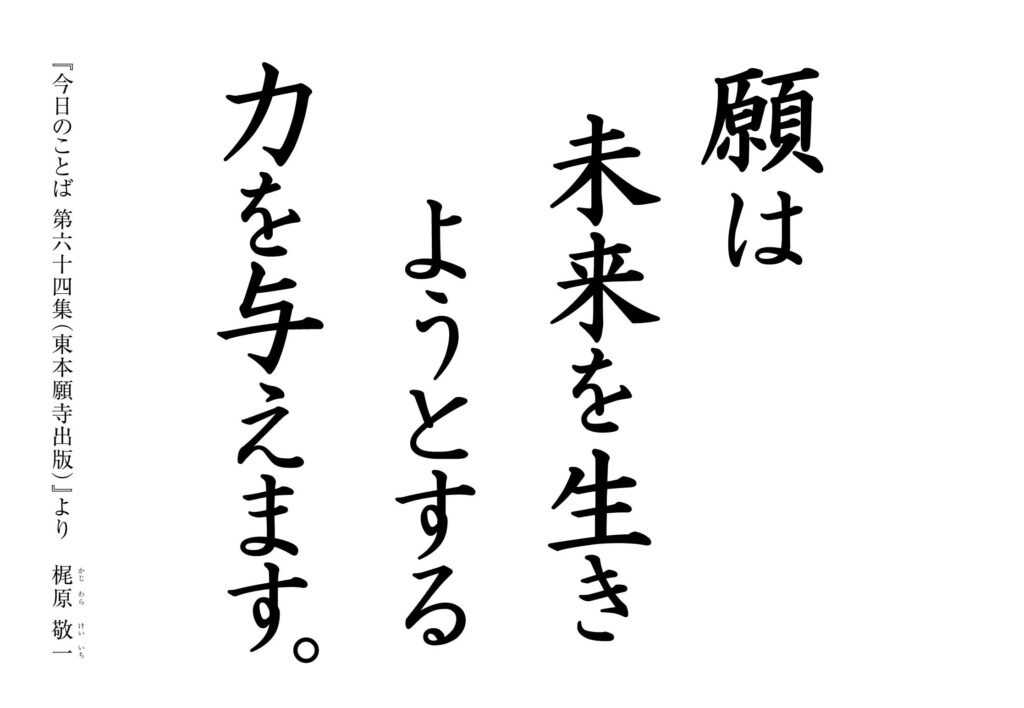 願は
未来を生き
ようとする
力を与えます。
『今日のことば 第六十四集(東本願寺出版)』より 梶原 敬一
かじ わら けい いち